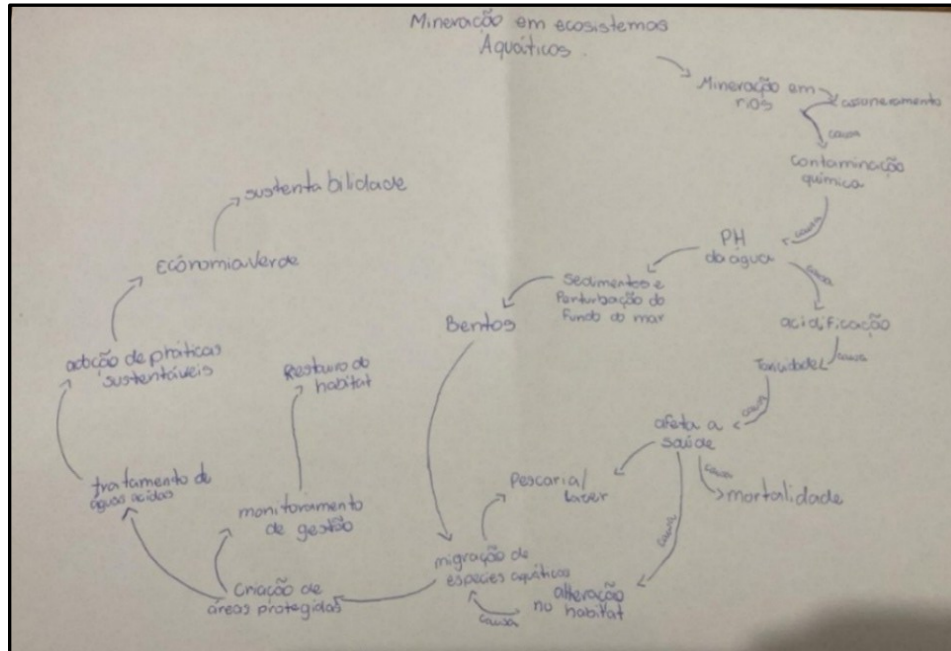 Mineração em ecosistemas
Aquáticos.
Mineração em
rios
assoneramento
causa
contaminação
química
causa
PH
da água
causa
acidificação
causa
Toxicidade
causa
afeta a
saúde
causa
mortalidade
causa
Sedimentos e
Perturbação do
Fundo do mar
Bentos
Pescaria/
Lazer
migração de
espécies aquáticas
alteração
no habitat
causa
Criação de
áreas protegidas
monitoramento
de gestão
Restauro do
habitat
tratamento de
águas acidas
adoção de práticas
sustentáveis
Ecônomia Verde
sustentabilidade